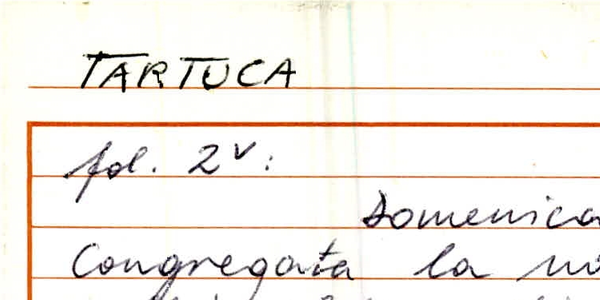 TARTUCA
fol. 2v:
Domenica
Congregata la